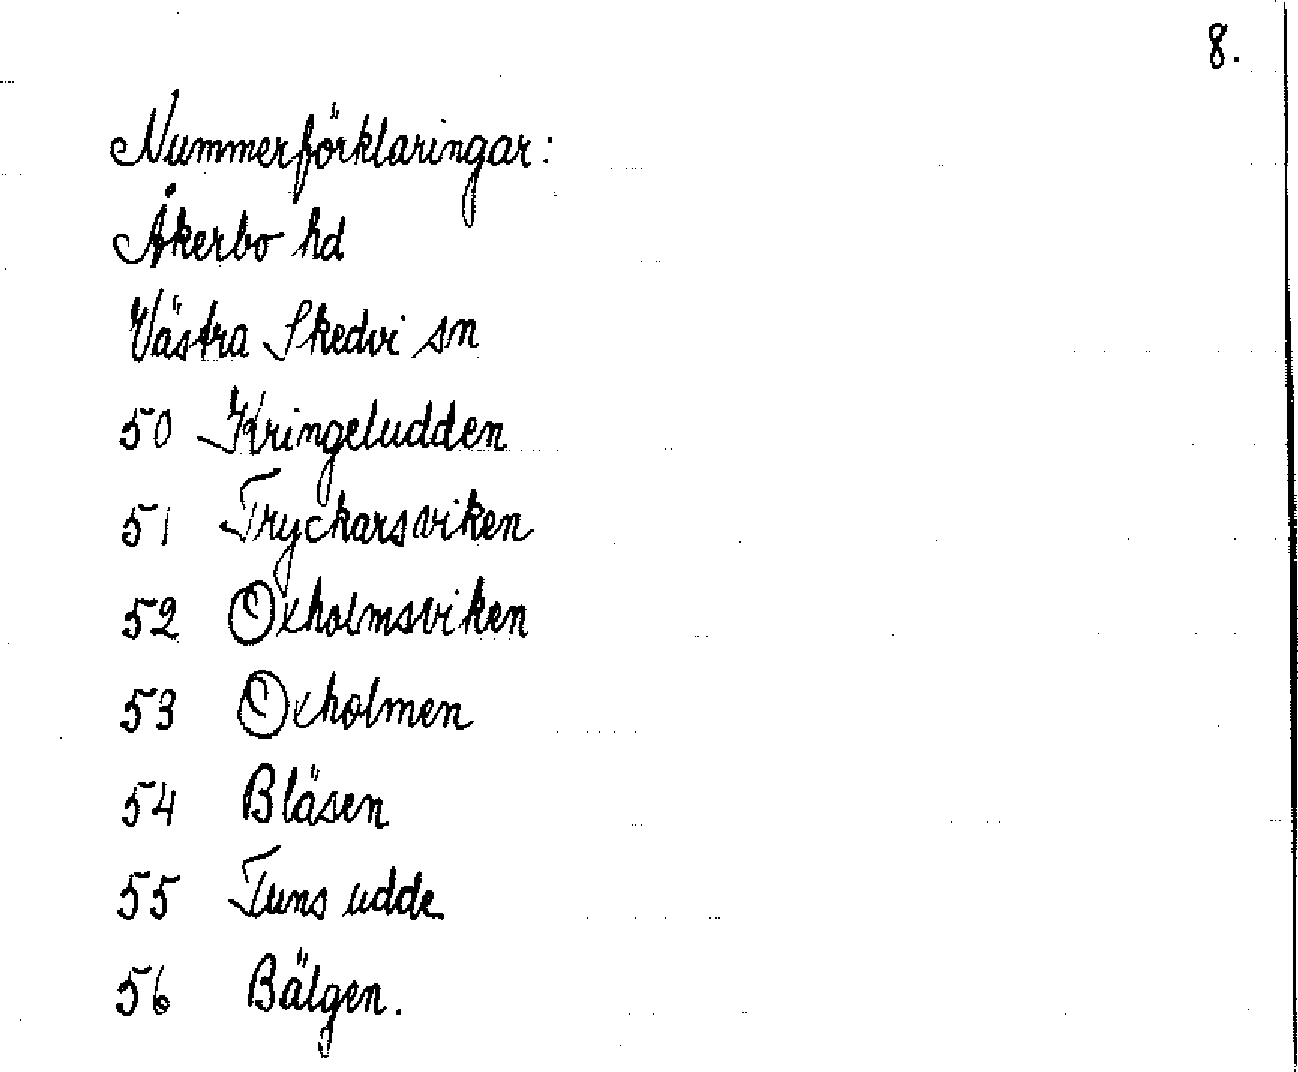 8.
Nummerförklaringar:
Åkerbo hd
Västra Skedvi sn
50 Kringeludden
51 Tryckarsviken
52 Oxholmsviken
53 Oxholmen
54 Bläsen
55 Tuns udde
56 Bälgen.